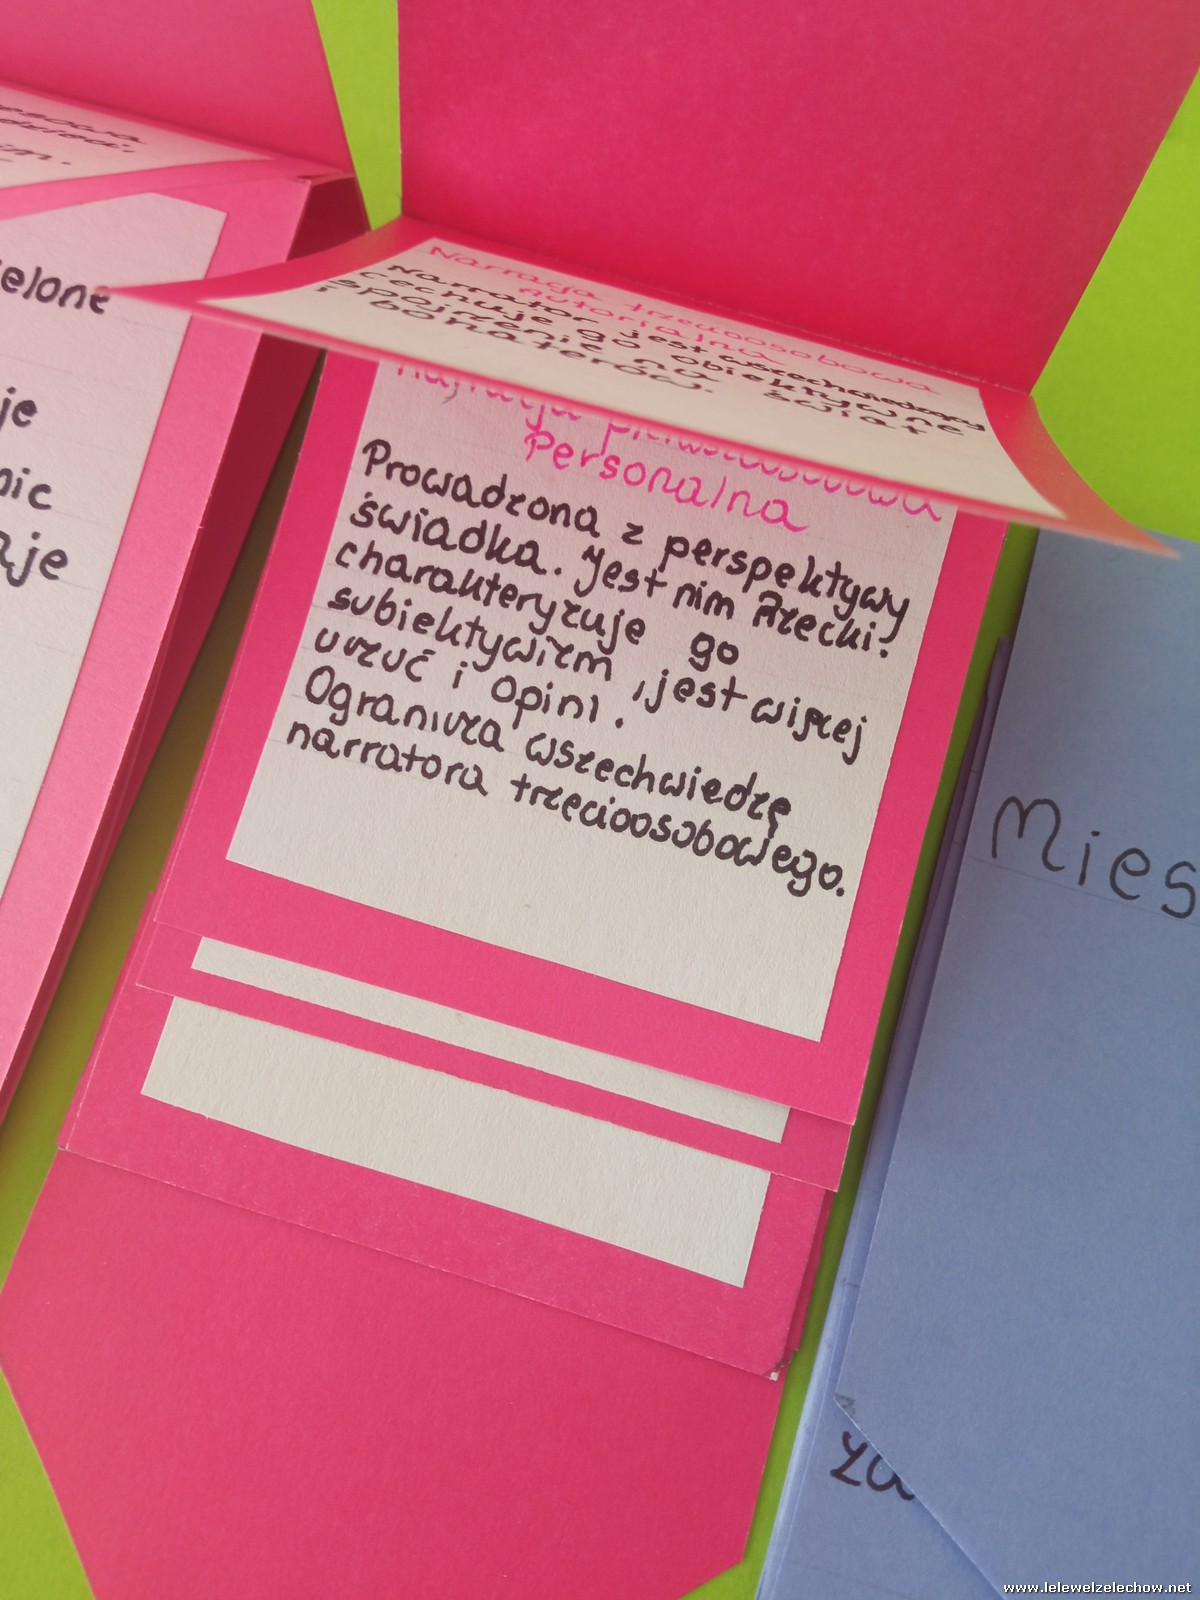 elone
je
nic
aje
Narracja trzecioosobowa
Autorialna
Narrator jest wszechwiedzący
cechuje go obiektywne
spojrzenie na świat
i bohaterów.
Narracja pierwszoosobowa
Personalna
Prowadzona z perspektywy
świadka. Jest nim Rzecki.
charakteryzuje go
subiektywizm, jest więcej
uczuć i opini.
Ogranicza wszechwiedzę
narratora trzecioosobowego.
Mies
za
www.lelewelzelechow.net